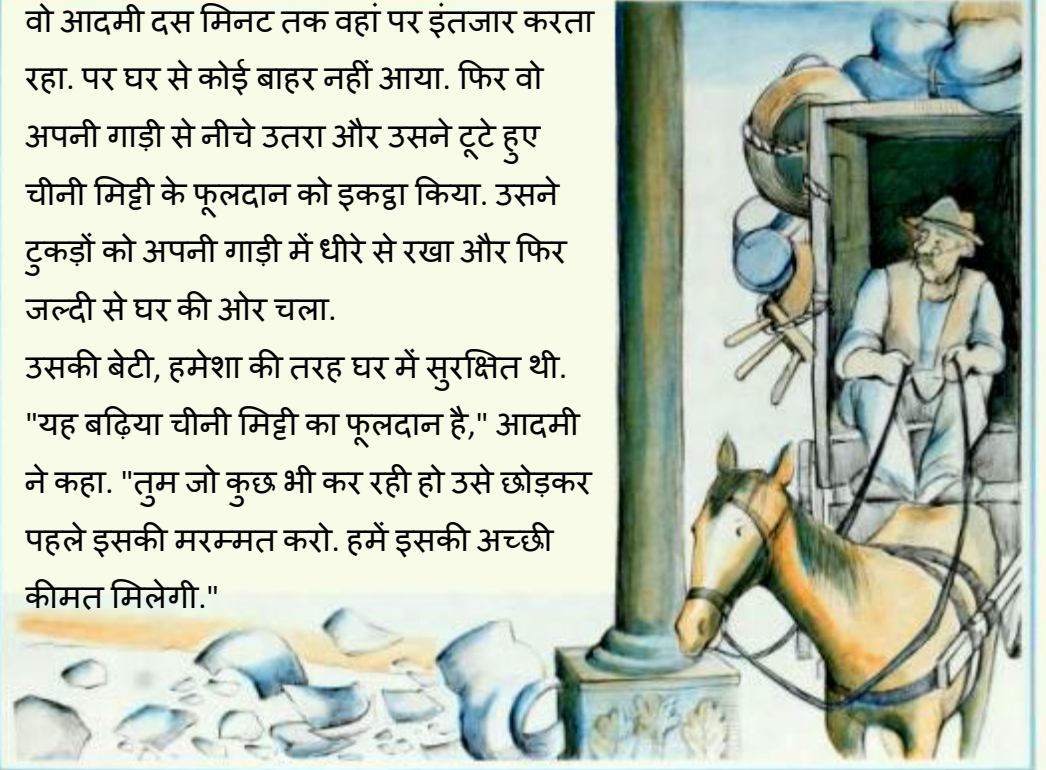 वो आदमी दस मिनट तक वहां पर इंतजार करता
रहा. पर घर से कोई बाहर नहीं आया. फिर वो
अपनी गाड़ी से नीचे उतरा और उसने टूटे हुए
चीनी मिट्टी के फूलदान को इकट्ठा किया. उसने
टुकड़ों को अपनी गाड़ी में धीरे से रखा और फिर
जल्दी से घर की ओर चला.
उसकी बेटी, हमेशा की तरह घर में सुरक्षित थी.
"यह बढ़िया चीनी मिट्टी का फूलदान है," आदमी
ने कहा. "तुम जो कुछ भी कर रही हो उसे छोड़कर
पहले इसकी मरम्मत करो. हमें इसकी अच्छी
कीमत मिलेगी."